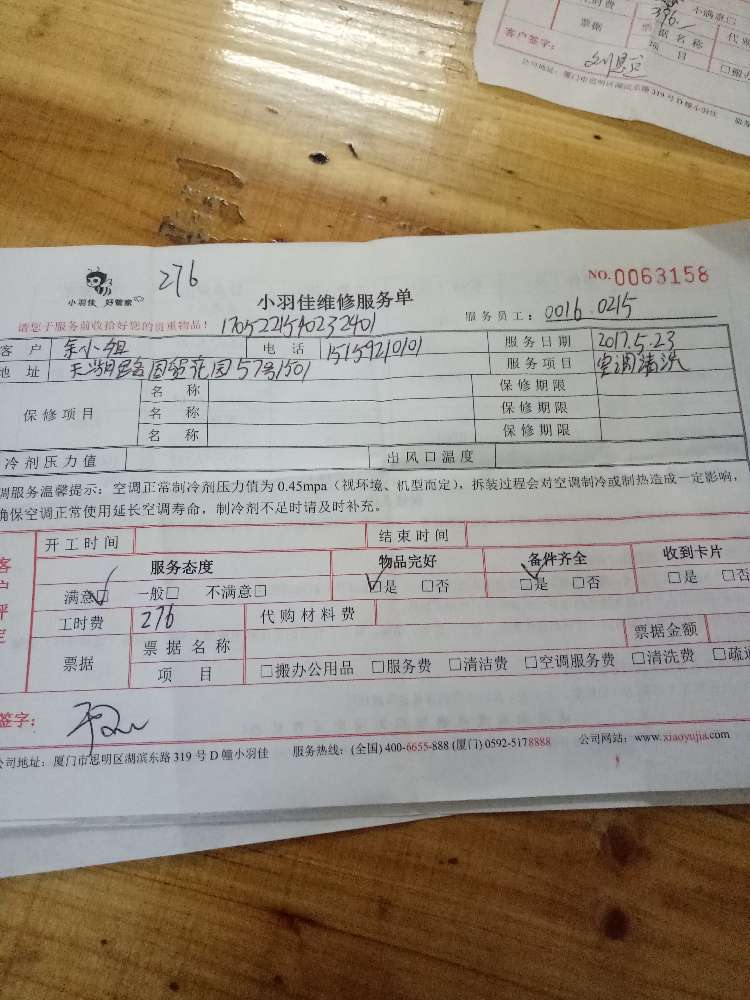 工时费 396.- 不满意□
票据 票据名称 代购
项 目 □搬办
客户签字:
公司地址:厦门市思明区湖滨东路 319 号 D 幢小羽佳 服务
276
小羽佳 好管家
小羽佳维修服务单
NO.0063158
请您于服务前收拾好您的贵重物品!
服务员工: 0016 .0215
客 户 余小姐 电 话 15159210101 服务日期 2017.5.23
地 址 国贸花园57号1501 服务项目 空调清洗
保修项目 名 称 保修期限
名 称 保修期限
名 称 保修期限
冷剂压力值 出风口温度
调服务温馨提示:空调正常制冷剂压力值为 0.45mpa(视环境、机型而定),拆装过程会对空调制冷或制热造成一定影响,
确保空调正常使用延长空调寿命,制冷剂不足时请及时补充。
客户评定
开工时间 结束时间
服务态度 物品完好 备件齐全 收到卡片
满意□ 一般□ 不满意□ □是 □否 □是 □否 □是 □否
工时费 276 代购材料费
票据 票据名称 票据金额
项 目 □搬办公用品 □服务费 □清洁费 □空调服务费 □清洗费 □疏通
签字:
公司地址:厦门市思明区湖滨东路 319 号 D 幢小羽佳 服务热线:(全国) 400-6655-888 (厦门) 0592-5178888 公司网站:www.xiaoyujia.com